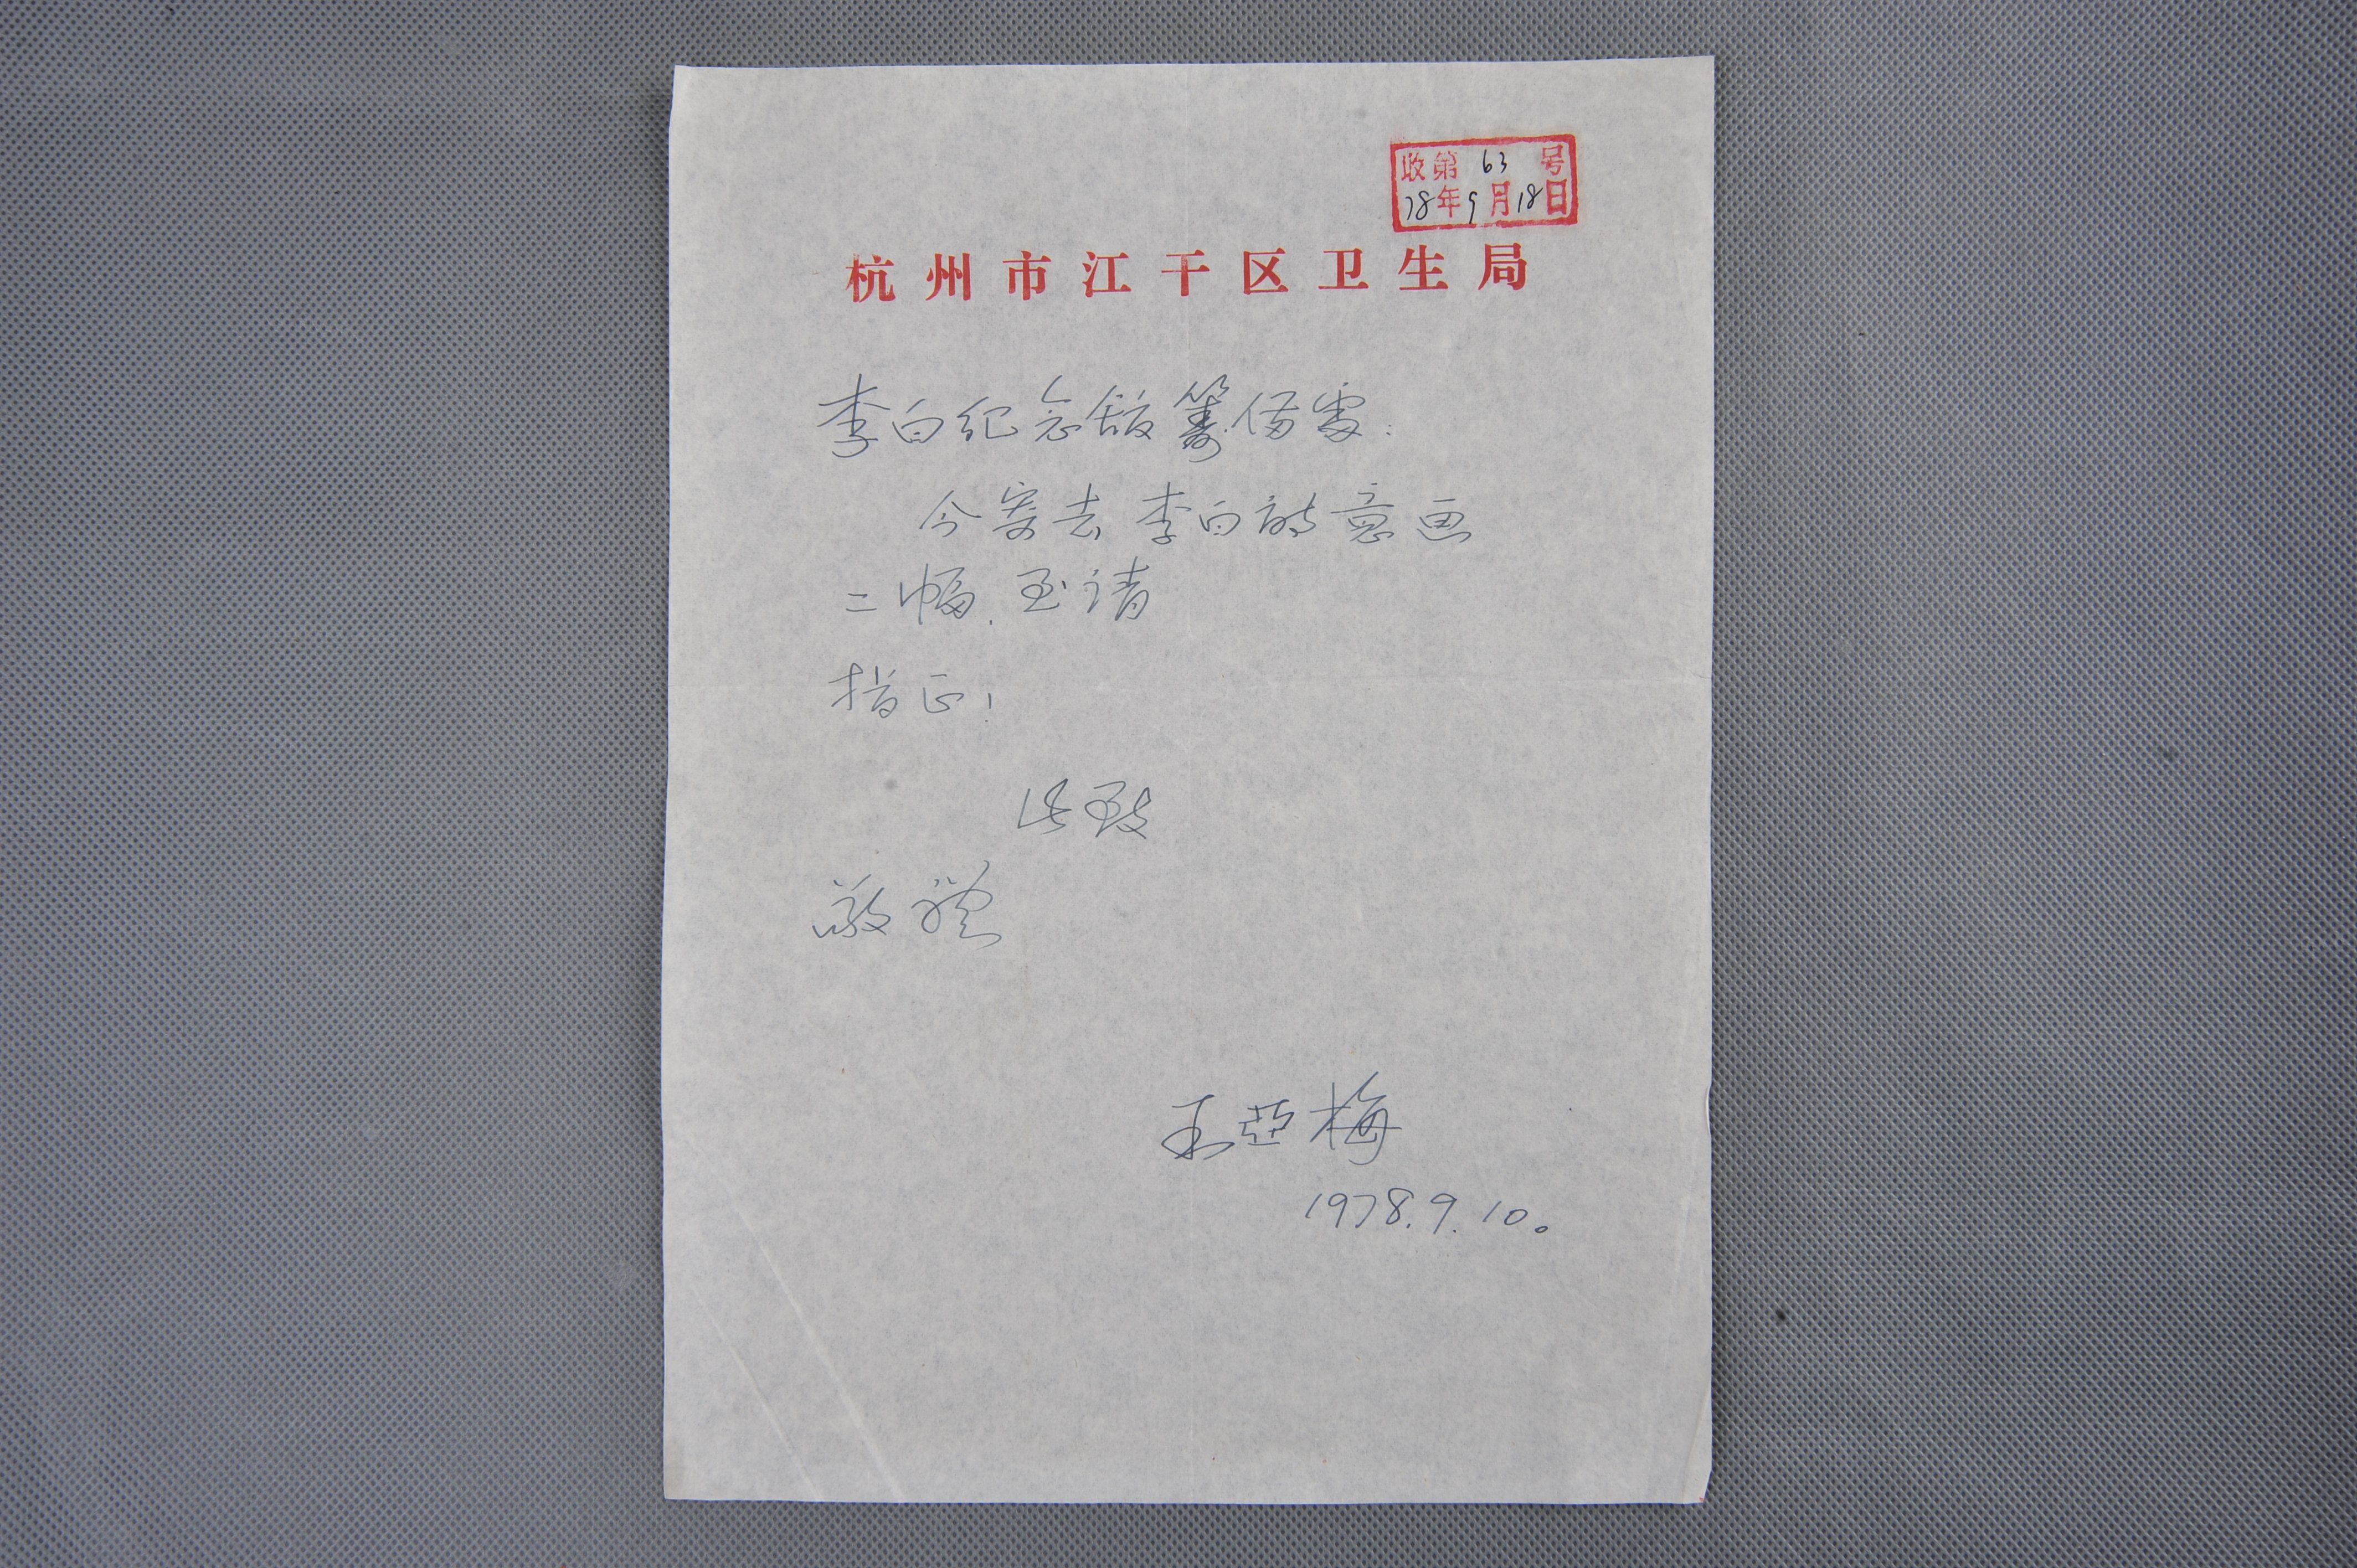 收第63号
78年9月18日
杭州市江干区卫生局
李白纪念馆筹备处:
今寄去李白诗意画
二幅,至请
指正!
此致
敬礼
王亞梅
1978.9.10。